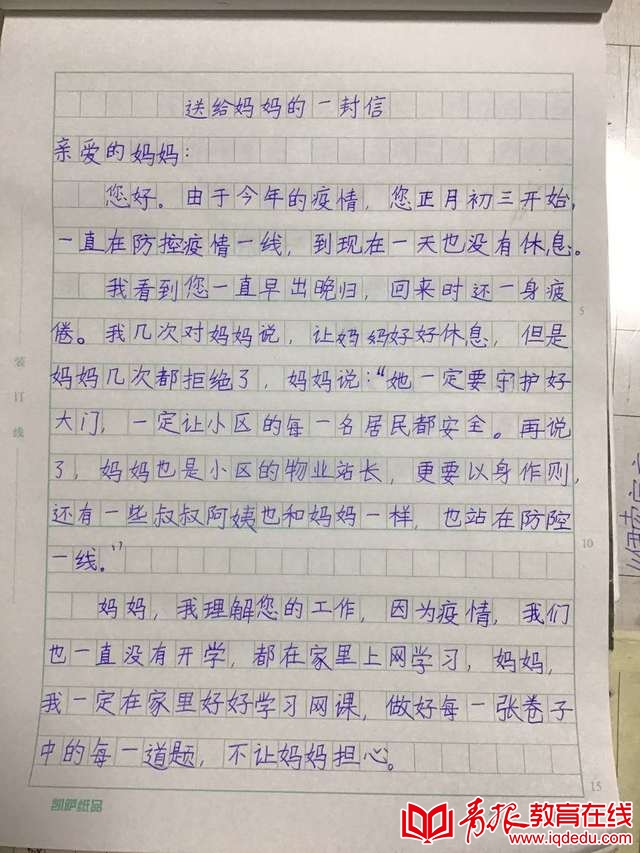 送给妈妈的一封信
亲爱的妈妈:
您好。由于今年的疫情,您正月初三开始,
一直在防控疫情一线,到现在一天也没有休息。
我看到您一直早出晚归,回来时还一身疲
5
倦。我几次对妈妈说,让妈妈好好休息,但是
妈妈几次都拒绝了,妈妈说:“她一定要守护好
大门,一定让小区的每一名居民都安全。再说
了,妈妈也是小区的物业站长,更要以身作则,
还有一些叔叔阿姨也和妈妈一样,也站在防控
一线。”
10
妈妈,我理解您的工作,因为疫情,我们
也一直没有开学,都在家里上网学习,妈妈,
我一定在家里好好学习网课,做好每一张卷子
中的每一道题,不让妈妈担心。
15
装订线
凯萨纸品
青报教育在线
www.iqdedu.com